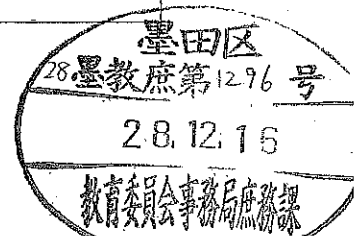 墨田区
28墨教庶第1296号
28.12.16
教育委員会事務局庶務課